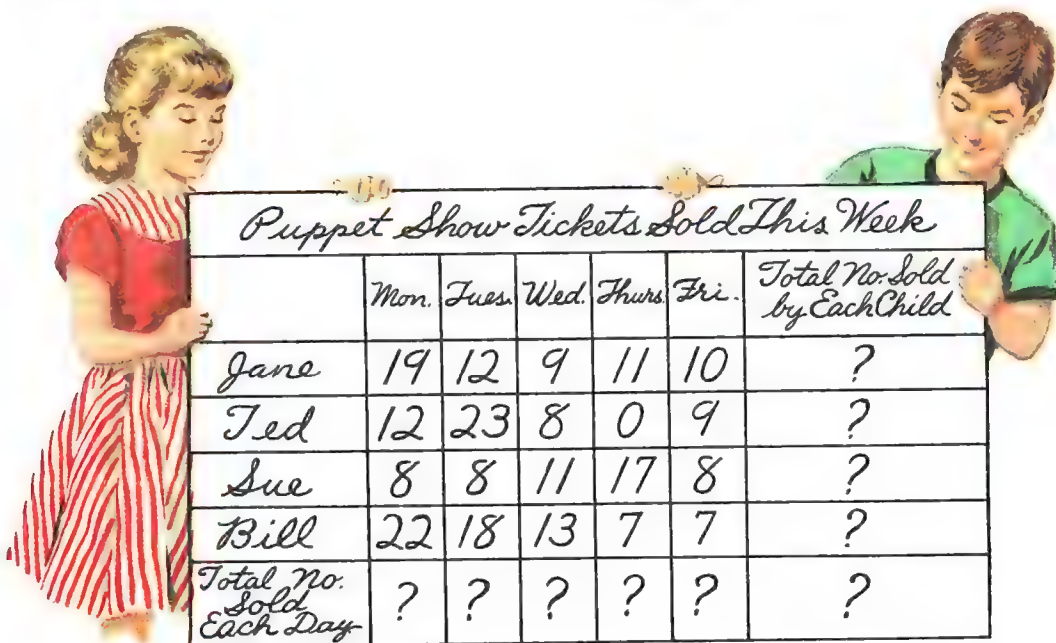 Puppet Show Tickets Sold This Week
Mon. Tues. Wed. Thurs. Fri. Total No. Sold
by Each Child
Jane 19 12 9 11 10 ?
Ted 12 23 8 0 9 ?
Sue 8 8 11 17 8 ?
Bill 22 18 13 7 7 ?
Total No.
Sold
Each Day ? ? ? ? ? ?